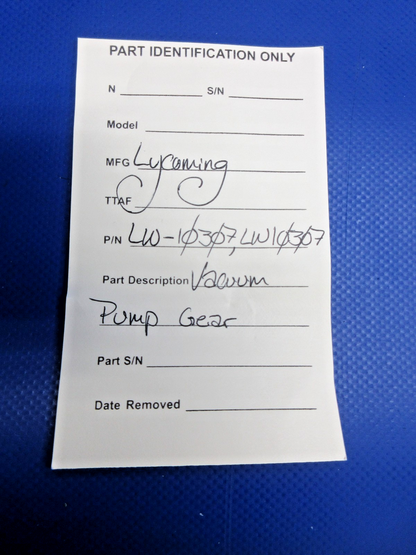 PART IDENTIFICATION ONLY
N ________ S/N ________
Model ________
MFG Lycoming
TTAF ________
P/N LW-10307, LW10307
Part Description Vacuum
Pump Gear
Part S/N ________
Date Removed ________